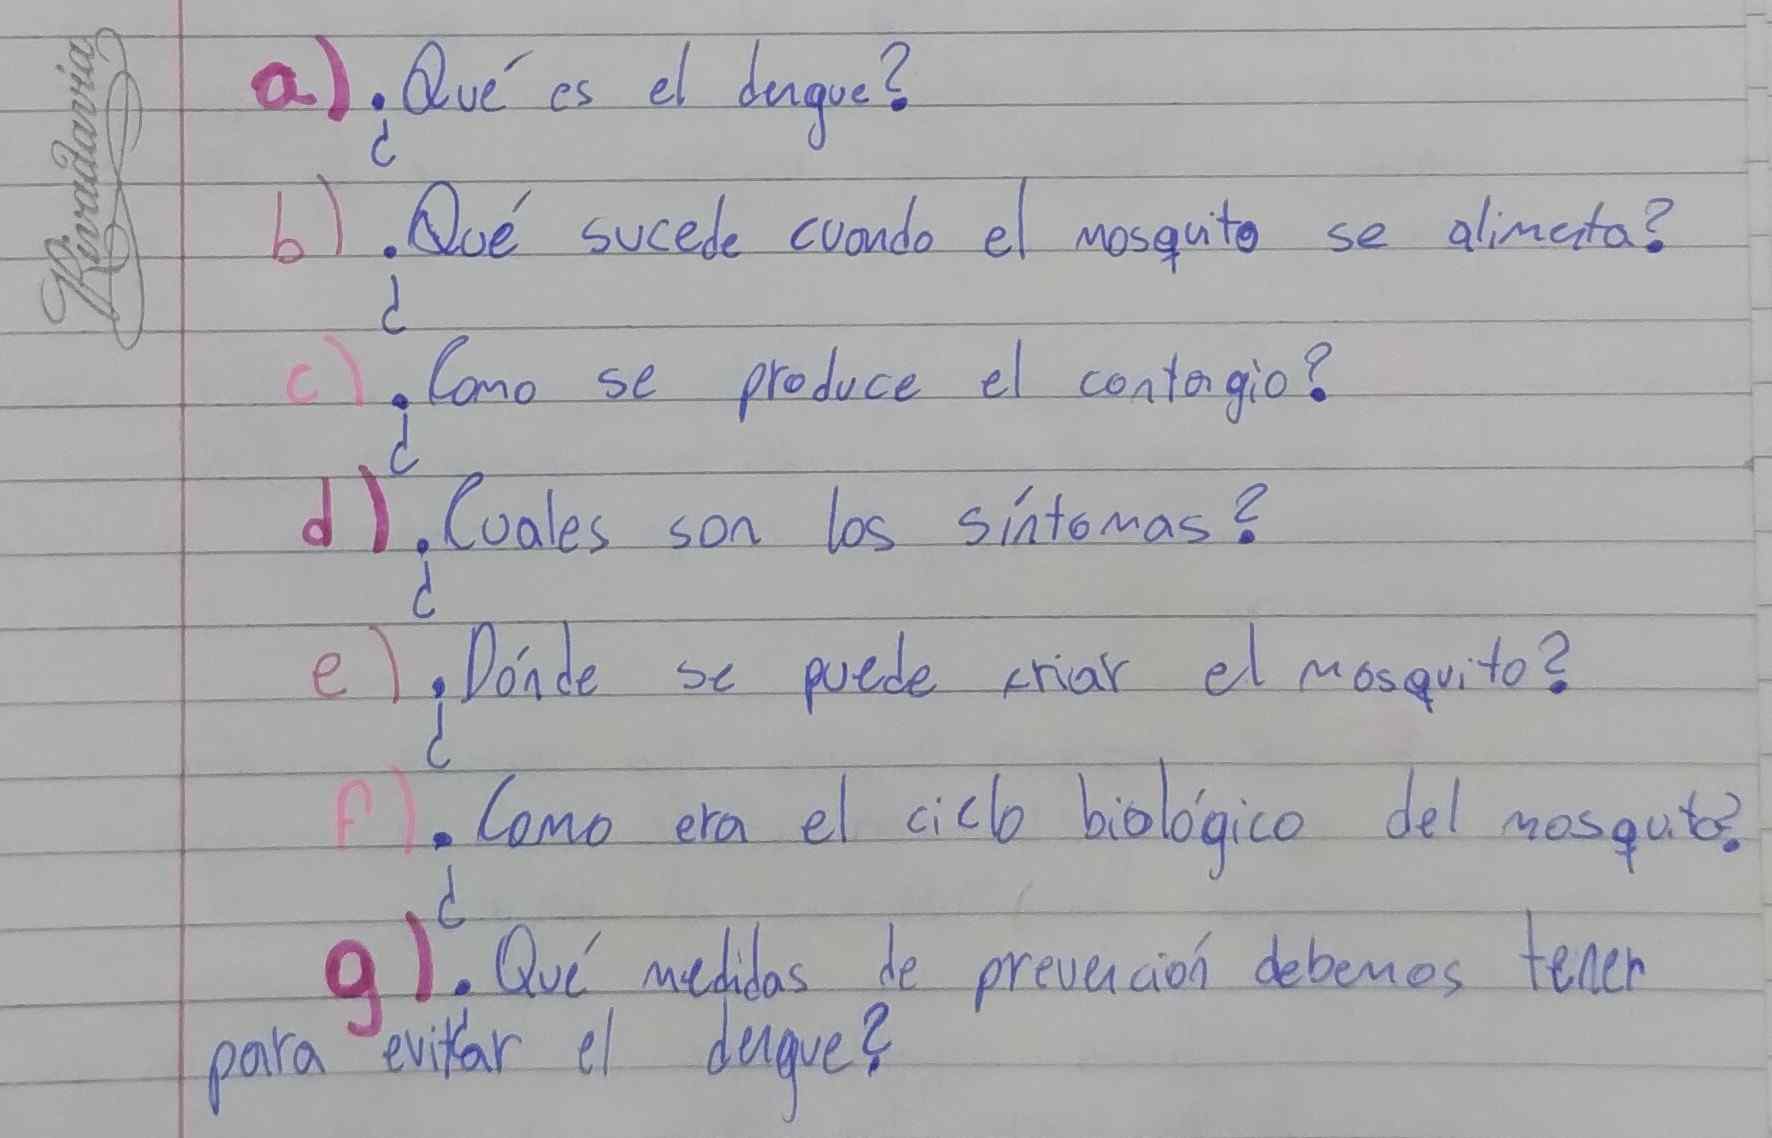 Rivadavia
a) ¿Qué es el dengue?
b) ¿Qué sucede cuando el mosquito se alimenta?
c) ¿Como se produce el contagio?
d) ¿Cuales son los síntomas?
e) ¿Dónde se puede criar el mosquito?
f) ¿Como era el ciclo biológico del mosquito?
g) ¿Qué medidas de prevención debemos tener
para evitar el dengue?